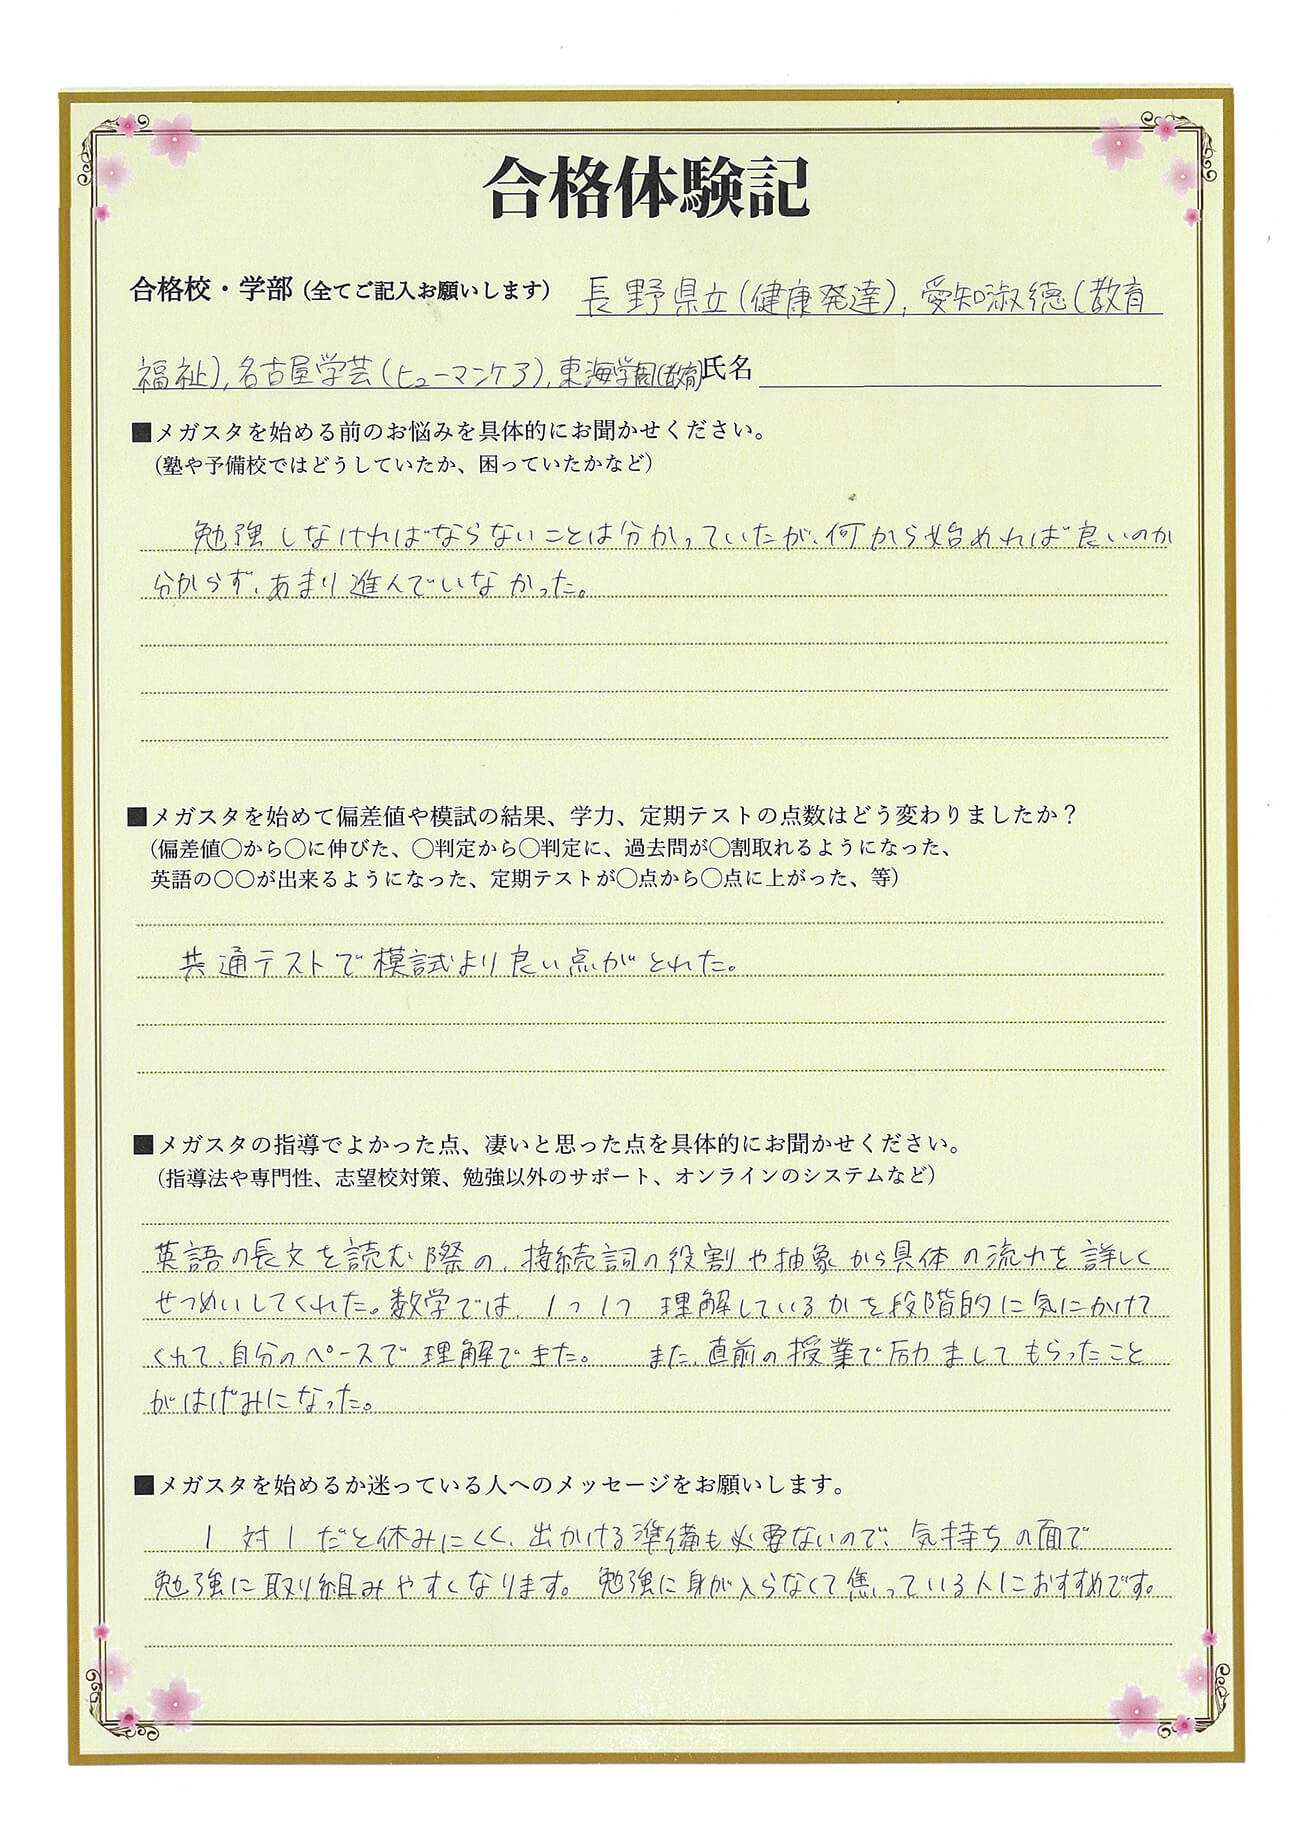 合格体験記
合格校・学部(全てご記入お願いします) 長野県立(健康発達),愛知淑徳(教育
福祉),名古屋学芸(ヒューマンケア),東海学園(教育)氏名
■メガスタを始める前のお悩みを具体的にお聞かせください。
(塾や予備校ではどうしていたか、困っていたかなど)
勉強しなければならないことは分かっていたが、何から始めれば良いのか
分からず、あまり進んでいなかった。
■メガスタを始めて偏差値や模試の結果、学力、定期テストの点数はどう変わりましたか？
(偏差値〇から〇に伸びた、〇判定から〇判定に、過去問が〇割取れるようになった、
英語の〇〇が出来るようになった、定期テストが〇点から〇点に上がった、等)
共通テストで模試より良い点がとれた。
■メガスタの指導でよかった点、凄いと思った点を具体的にお聞かせください。
(指導法や専門性、志望校対策、勉強以外のサポート、オンラインのシステムなど)
英語の長文を読む際の、接続詞の役割や抽象から具体の流れを詳しく
せつめいしてくれた。数学では、1つ1つ 理解しているかを段階的に気にかけて
くれて、自分のペースで理解できた。 また、直前の授業で励ましてもらったこと
がはげみになった。
■メガスタを始めるか迷っている人へのメッセージをお願いします。
1対1だと休みにくく、出かける準備も必要ないので、気持ちの面で
勉強に取り組みやすくなります。勉強に身が入らなくて焦っている人におすすめです。